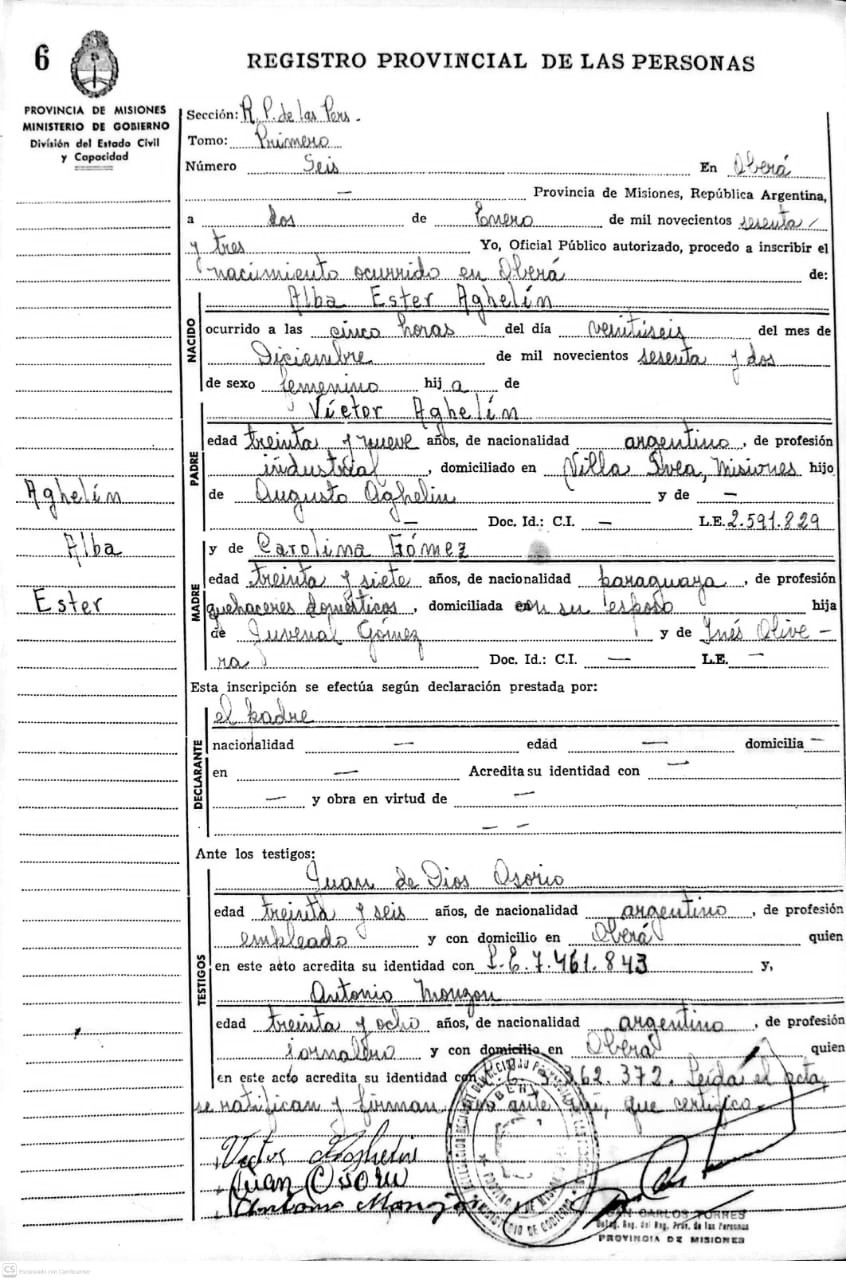 6
REGISTRO PROVINCIAL DE LAS PERSONAS
PROVINCIA DE MISIONES
MINISTERIO DE GOBIERNO
División del Estado Civil
y Capacidad
Sección: R. P. de las Pers.
Tomo: Primero
Número Seis En Oberá
— Provincia de Misiones, República Argentina,
a dos de Enero de mil novecientos sesenta
y tres Yo, Oficial Público autorizado, procedo a inscribir el
nacimiento ocurrido en Oberá de:
NACIDO
Alba Ester Aghelín
ocurrido a las cinco horas del día veintiseis del mes de
Diciembre de mil novecientos sesenta y dos
de sexo femenino hij a de
PADRE
Víctor Aghelín
edad treinta y nueve años, de nacionalidad argentino, de profesión
industrial, domiciliado en Villa Svea, Misiones hijo
de Augusto Aghelin y de —
— Doc. Id.: C.I. — L.E. 2.591.829
Aghelín
Alba
Ester
MADRE
y de Carolina Gómez
edad treinta y siete años, de nacionalidad paraguaya, de profesión
quehaceres domésticos, domiciliada con su esposo hija
de Juvenal Gómez y de Inés Olive-
ra Doc. Id.: C.I. — L.E. —
Esta inscripción se efectúa según declaración prestada por:
DECLARANTE
el padre
nacionalidad — edad — domicilia —
en — Acredita su identidad con —
— y obra en virtud de —
— —
Ante los testigos:
TESTIGOS
Juan de Dios Osorio
edad treinta y seis años, de nacionalidad argentino, de profesión
empleado y con domicilio en Oberá quien
en este acto acredita su identidad con L.E. 7.461.843 y,
Antonio Monzon
edad treinta y ocho años, de nacionalidad argentino, de profesión
jornalero y con domicilio en Oberá quien
en este acto acredita su identidad con 362.372. Leída el acta
se ratifican y firman ante mí, que certifico.
Victor Aghelin
Juan Osorio
Antonio Monzón
OBERA
JUAN CARLOS TORRES
Deleg. Reg. del Reg. Prov. de las Personas
PROVINCIA DE MISIONES
CS Escaneado con CamScanner